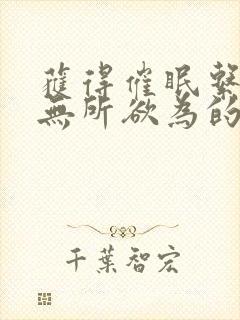 獲得催眠繫
無所欲為的
千葉智宏